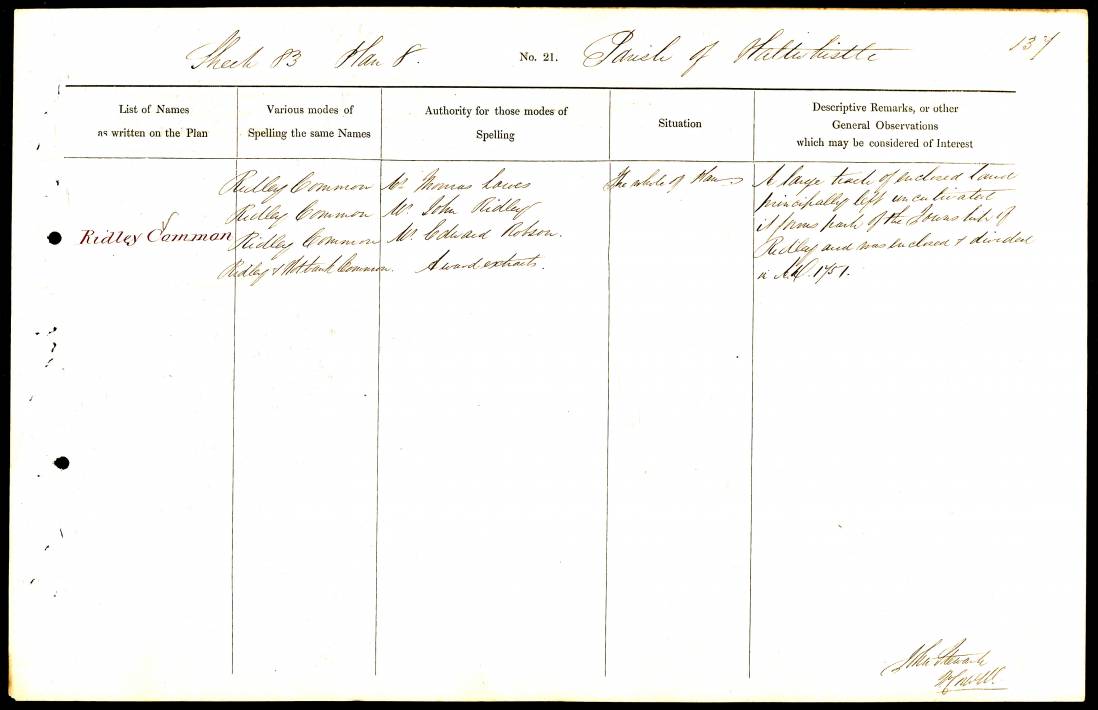 Sheet 83 Plan 8. No. 21. Parish of Haltwhistle 137
List of Names
as written on the Plan
Various modes of
Spelling the same Names
Authority for those modes of
Spelling
Situation
Descriptive Remarks, or other
General Observations
which may be considered of Interest
Ridley Common
Ridley Common Mr. Thomas Lowes
Ridley Common Mr. John Ridley
Ridley Common Mr. Edward Robson.
Ridley & Hotbank Common. Award extracts.
The whole of Plan
A large tract of enclosed land
principally left uncultivated
it forms part of the Township of
Ridley and was enclosed & divided
in A.D. 1751.
John Stewart